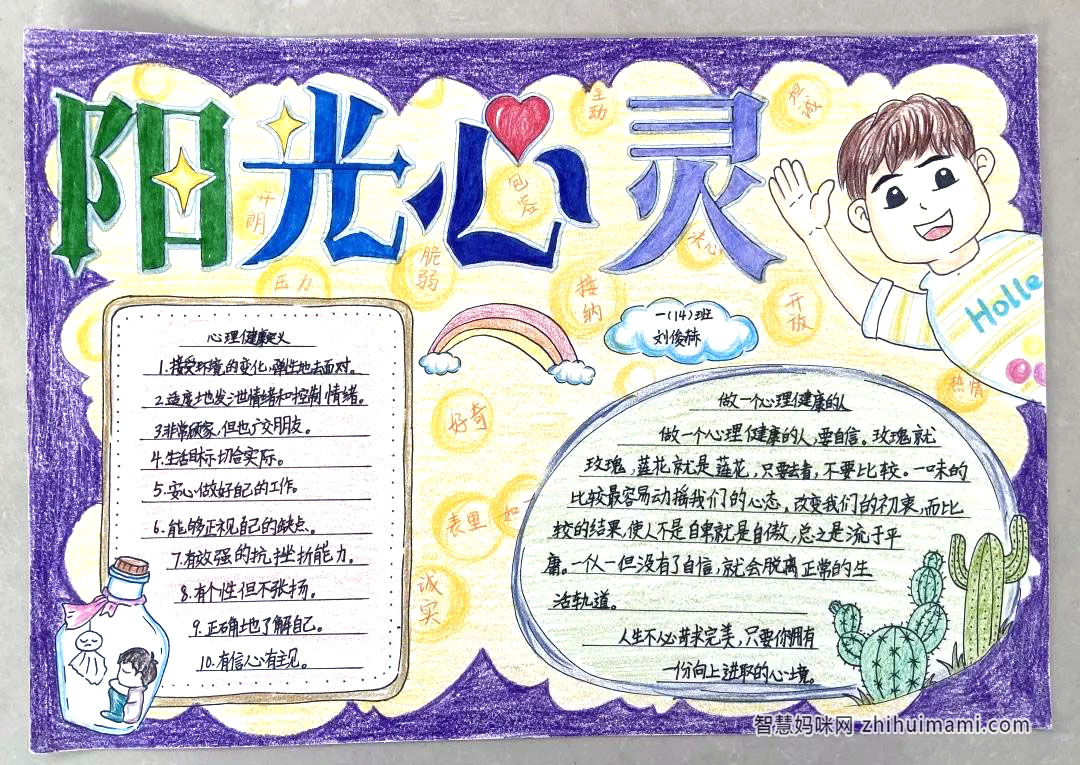 阳光心灵
主动
坦诚
开朗
包容
决心
脆弱
压力
接纳
开放
热情
好奇
表里如
诚实
Holle
一(14)班
刘俊赫
心理健康定义
1.接受环境的变化,弹性地去面对。
2.适度地发泄情绪和控制情绪。
3.非常顾家,但也广交朋友。
4.生活目标切合实际。
5.安心做好自己的工作。
6.能够正视自己的缺点。
7.有效强的抗挫折能力。
8.有个性但不张扬。
9.正确地了解自己。
10.有信心有主见。
做一个心理健康的人
做一个心理健康的人,要自信。玫瑰就
玫瑰,莲花就是莲花,只要去看,不要比较。一味的
比较最容易动摇我们的心态,改变我们的初衷,而比
较的结果,使人不是自卑就是自傲,总之是流于平
庸。一个人一但没有了自信,就会脱离正常的生
活轨道。
人生不必苛求完美,只要你拥有
一份向上进取的心境。
智慧妈咪网 zhihuimami.com